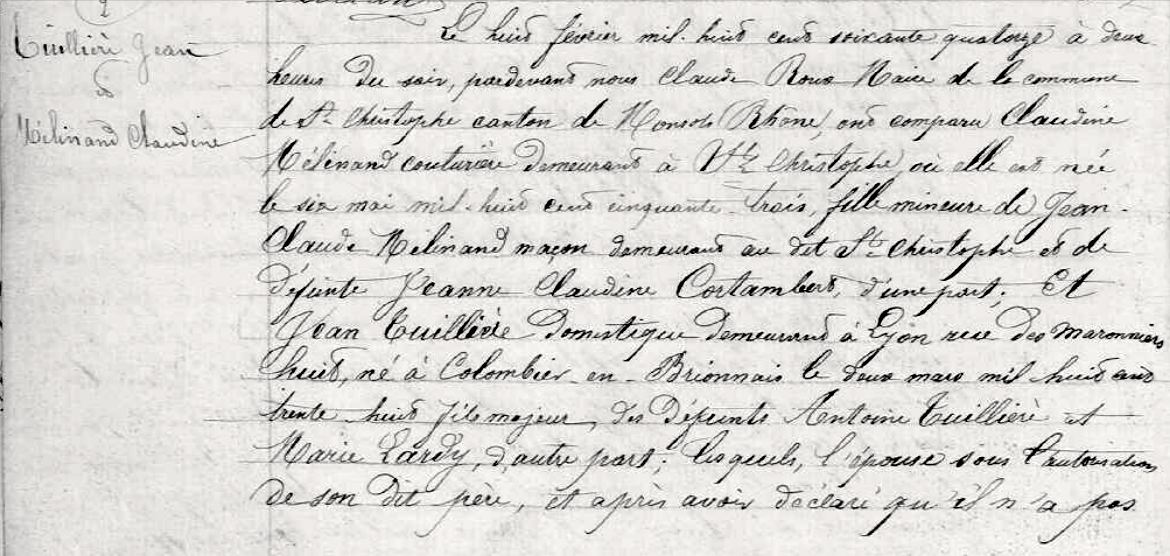 2
Tuillière Jean
&
Mélinand Claudine
Le huit février mil-huit cent soixante quatorze à deux
heures du soir, pardevant nous Claude Roux Maire de la commune
de St Christophe canton de Monsols (Rhône) ont comparu Claudine
Mélinand couturière demeurant à St Christophe où elle est née
le six mai mil-huit cent cinquante-trois, fille mineure de Jean-
Claude Mélinand maçon demeurant au dit St Christophe et de
défunte Jeanne Claudine Cortambert, d'une part; Et
Jean Tuillière domestique demeurant à Lyon rue des Maronniers
huit, né à Colombier-en-Brionnais le deux mars mil-huit cent
trente huit fils majeur, des défunts Antoine Tuillière et
Marie Lardy, d'autre part; lesquels, l'épouse sous l'autorisation
de son dit père, et après avoir déclaré qu'il n'a pas